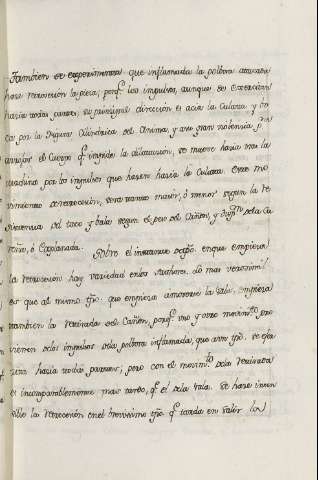 Tambien se experimenta que inflamada la polbora atacada
hace retrocecion la pieza; porq.e los impulsos, aunque se exercitan
hacia todas partes, su principal direccion es acia la Culata, y bo
ca por la figura Cilindrica del Anima, y aun gran violencia p.a
arrojar el Cuerpo q.e impide la dilatacion, se mueve hacia tras la
maquina por los impulsos que hacen hacia la Culata. Este mo
vimiento de retrocecion, sera tanto maior, ó menor segun la re
sistencia del taco y bala segun el peso del Cañon, y disp.on de la Cu
reña, ó Explanada. Sobre el instante de tpo. en que empieza
la retrocecion hay variedad entre los Autores. Lo mas verosimil
es que al mismo tpo. que empieza a moverse la bala, empieza
tambien la retirada del Cañon, porq.e uno y otro movim.to pro
vienen de los impulsos de la polbora inflamada, que a un tpo. se exer
citan hacia todas partes; pero con el movim.to de la retirada
es incomparablemente mas tardo, q.e el de la bala. Se hace insen
sible la retrocecion en el brevisimo tpo. q.e tarda en salir la